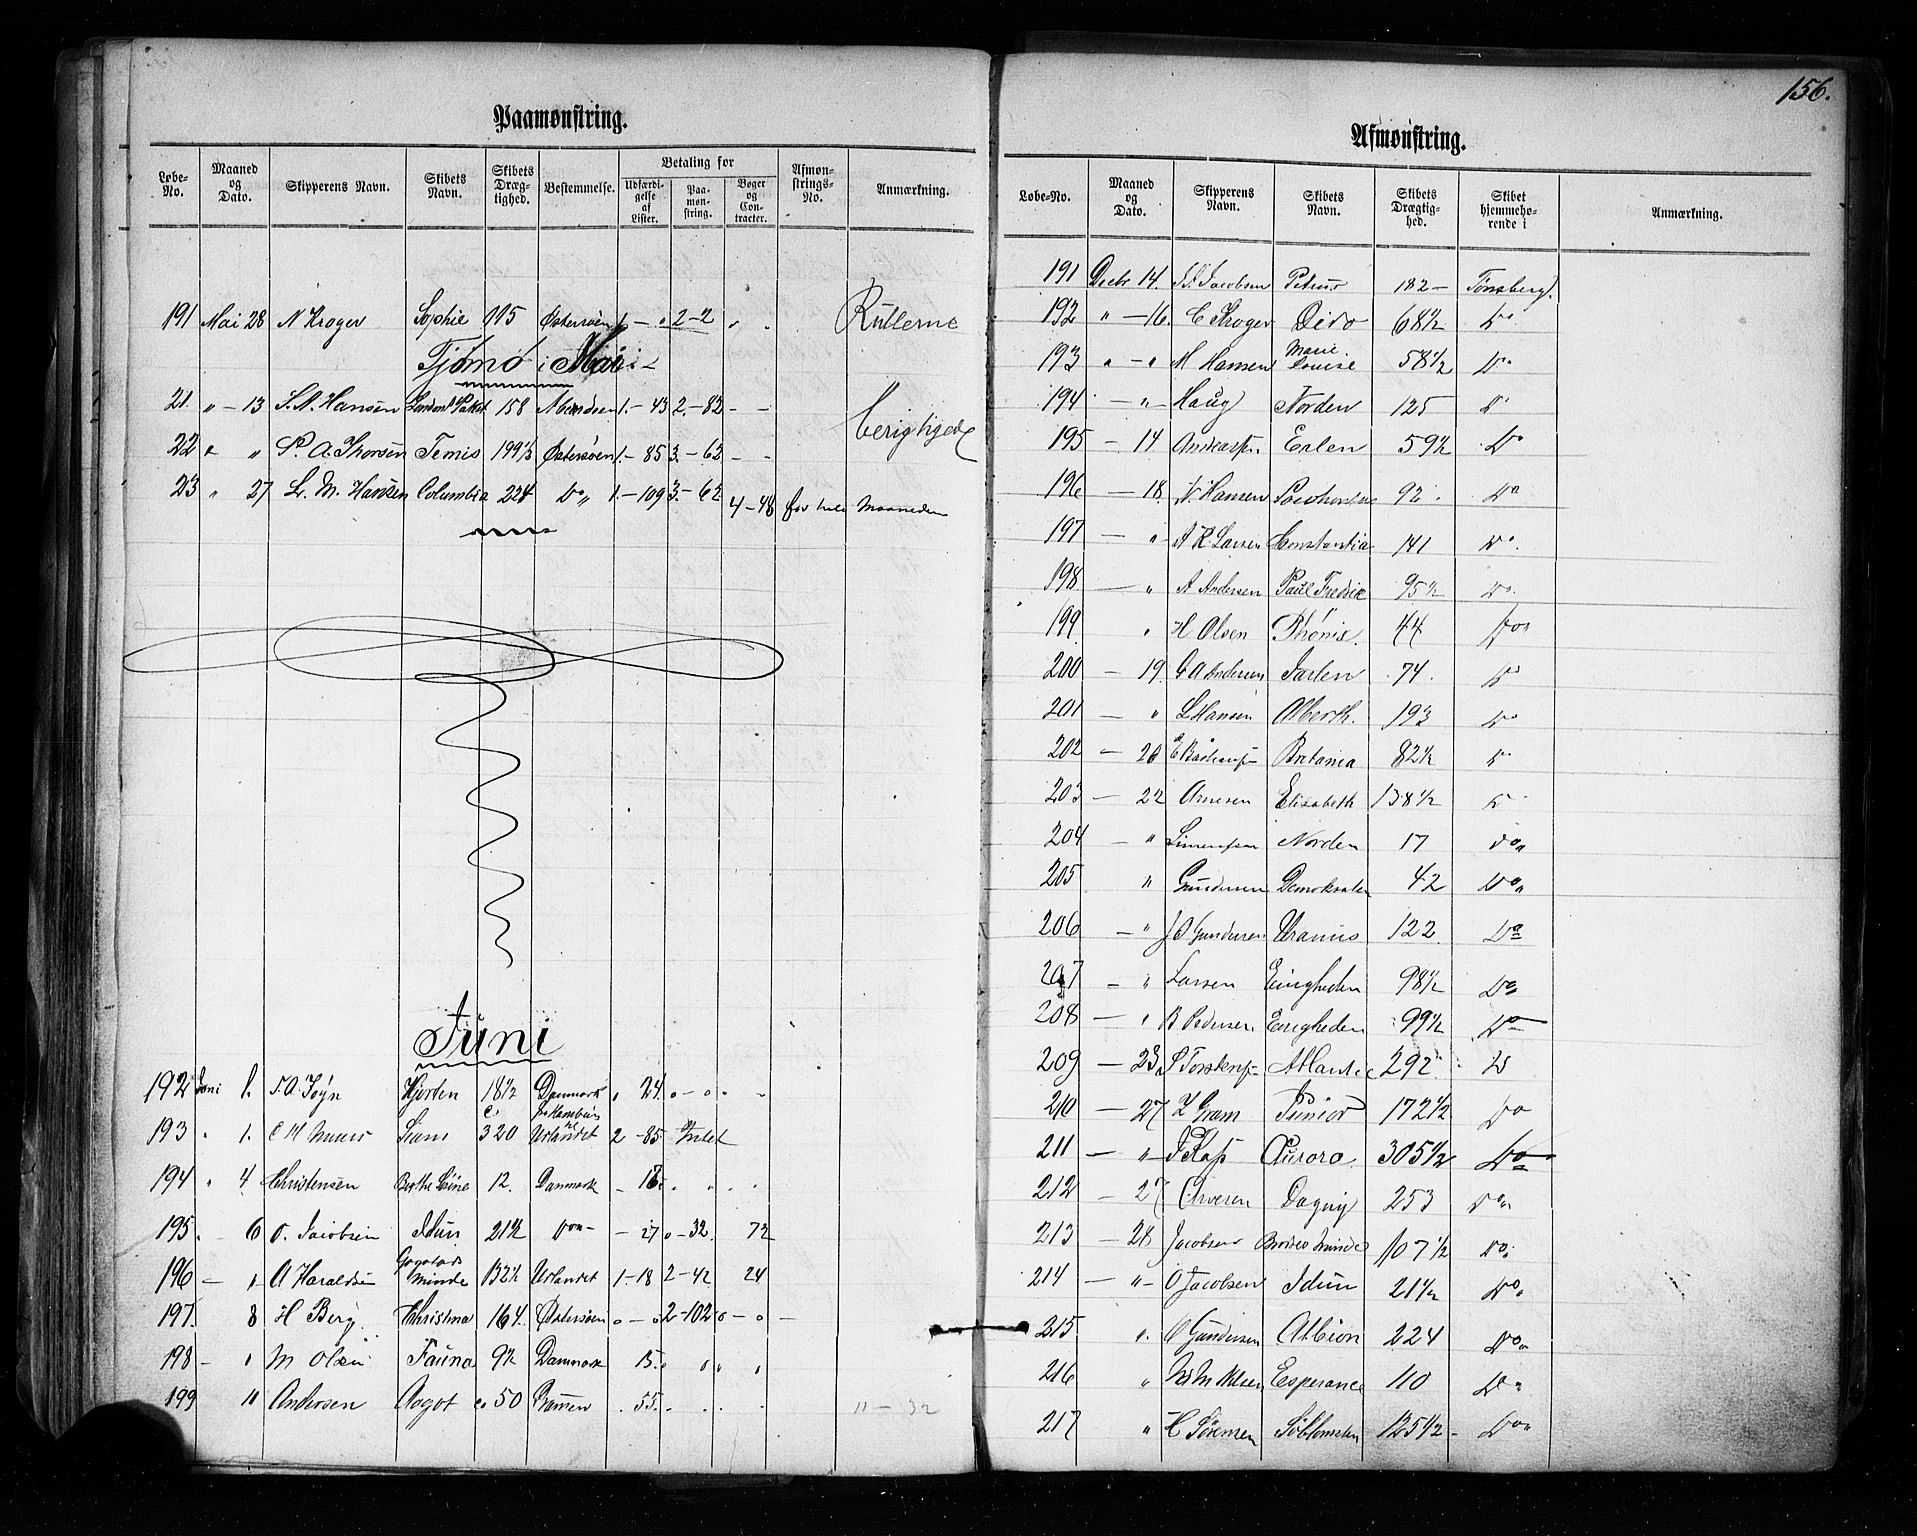 156.
Paamønstring.
Løbe-No. Maaned og Dato. Skipperens Navn. Skibets Navn. Skibets Dræg-tighed. Bestemmelse. Betaling for Udfærdi-gelse af Lister. Paa-mon-string. Bøger og Con-tracter. Afmøn-strings-No. Anmærkning.
191 Mai 28 N Kroger Sophie 115 Østersøen 1 - " 2-2 " "
Tjømø i Mai
21 " - 13 S. A. Hansen 158 1.- 43 2.- 82 - -
22 " " P. A. Thorsen Temis 199½ Østersøen 1.- 85 3.- 62 - -
23 " 27 L. M. Hansen Columbia 224 Do " 1.- 109 3.- 62 4-48 for hele Maaneden
Juni
192 Juni 1. Søyn Hjorten 18½ Danmark " 24
193 " 1. Siam 320 Urlandet 2 - 85 Intet
194 " 4 Christensen 12. Danmark
195. 6 O. Jacobsen Idun 21½ Do - 27 " - 32 72
196 - " A Haraldsen Gogstads minde 132½ Urlandet 1-18 2-42 24
197. 8 H Berg Christina 164. Østersøen " - " 2-102
198 - " M Olsen Fauna 9½ Danmark 15.
199 11 Andersen Aagot 50 55.
11 - 32
Afmønstring.
Løbe-No. Maaned og Dato. Skipperens Navn. Skibets Navn. Skibets Drægtig-hed. Skibet hjemmehø-rende i Anmærkning.
191 Decbr 14. Jacobsen Petrus 182 - Tønsberg.
192 " - 16. C Kroger Dido 68½ Do
193 " - " M Hansen Marie Louise 58½ Do
194 - " - Haug Norden 125 Do
195 - 14 Erlen 59½ Do
196 - 18. N Hansen 92 Do
197 - " A K Larsen Constantia 141 Do.
198 - " A Andersen Paul Fredrik 95½ Do.
199 " H Olsen Phønix. 44 Do
200 - 19. C A Andersen Jarlen 74. Do
201 - " L Hansen Alberth. 193 Do
202 - 20 Britania 82½ Do
203 - 22 Arnesen Elisabeth 138½ Do
204 - " Norden 17 Do
205 " Gundersen Demokraten 42 Do
206 - " J O Gundersen Uranus 122 Do
207 - " Larsen Einigheden 98½ Do
208 - " B Pedersen Enigheden 99½ Do
209 - 23 Atlantic 292 Do
210 - 27 Z Gram Junior 172½ Do
211 - " Aurora 305½ Do
212 - 27 Dagny 253 Do
213 - 28 Jacobsen 107½ Do
214 - " - O Jacobsen Idun 21½ Do
215 " O Gundersen Albion 224 Do
216 " Esperance 110 Do
217 " H Sørensen 125½ - Do